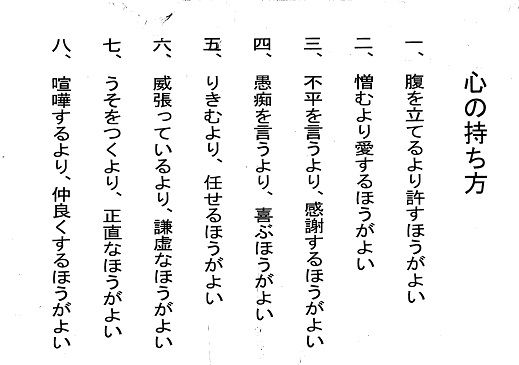 心の持ち方
一、腹を立てるより許すほうがよい
二、憎むより愛するほうがよい
三、不平を言うより、感謝するほうがよい
四、愚痴を言うより、喜ぶほうがよい
五、りきむより、任せるほうがよい
六、威張っているより、謙虚なほうがよい
七、うそをつくより、正直なほうがよい
八、喧嘩するより、仲良くするほうがよい